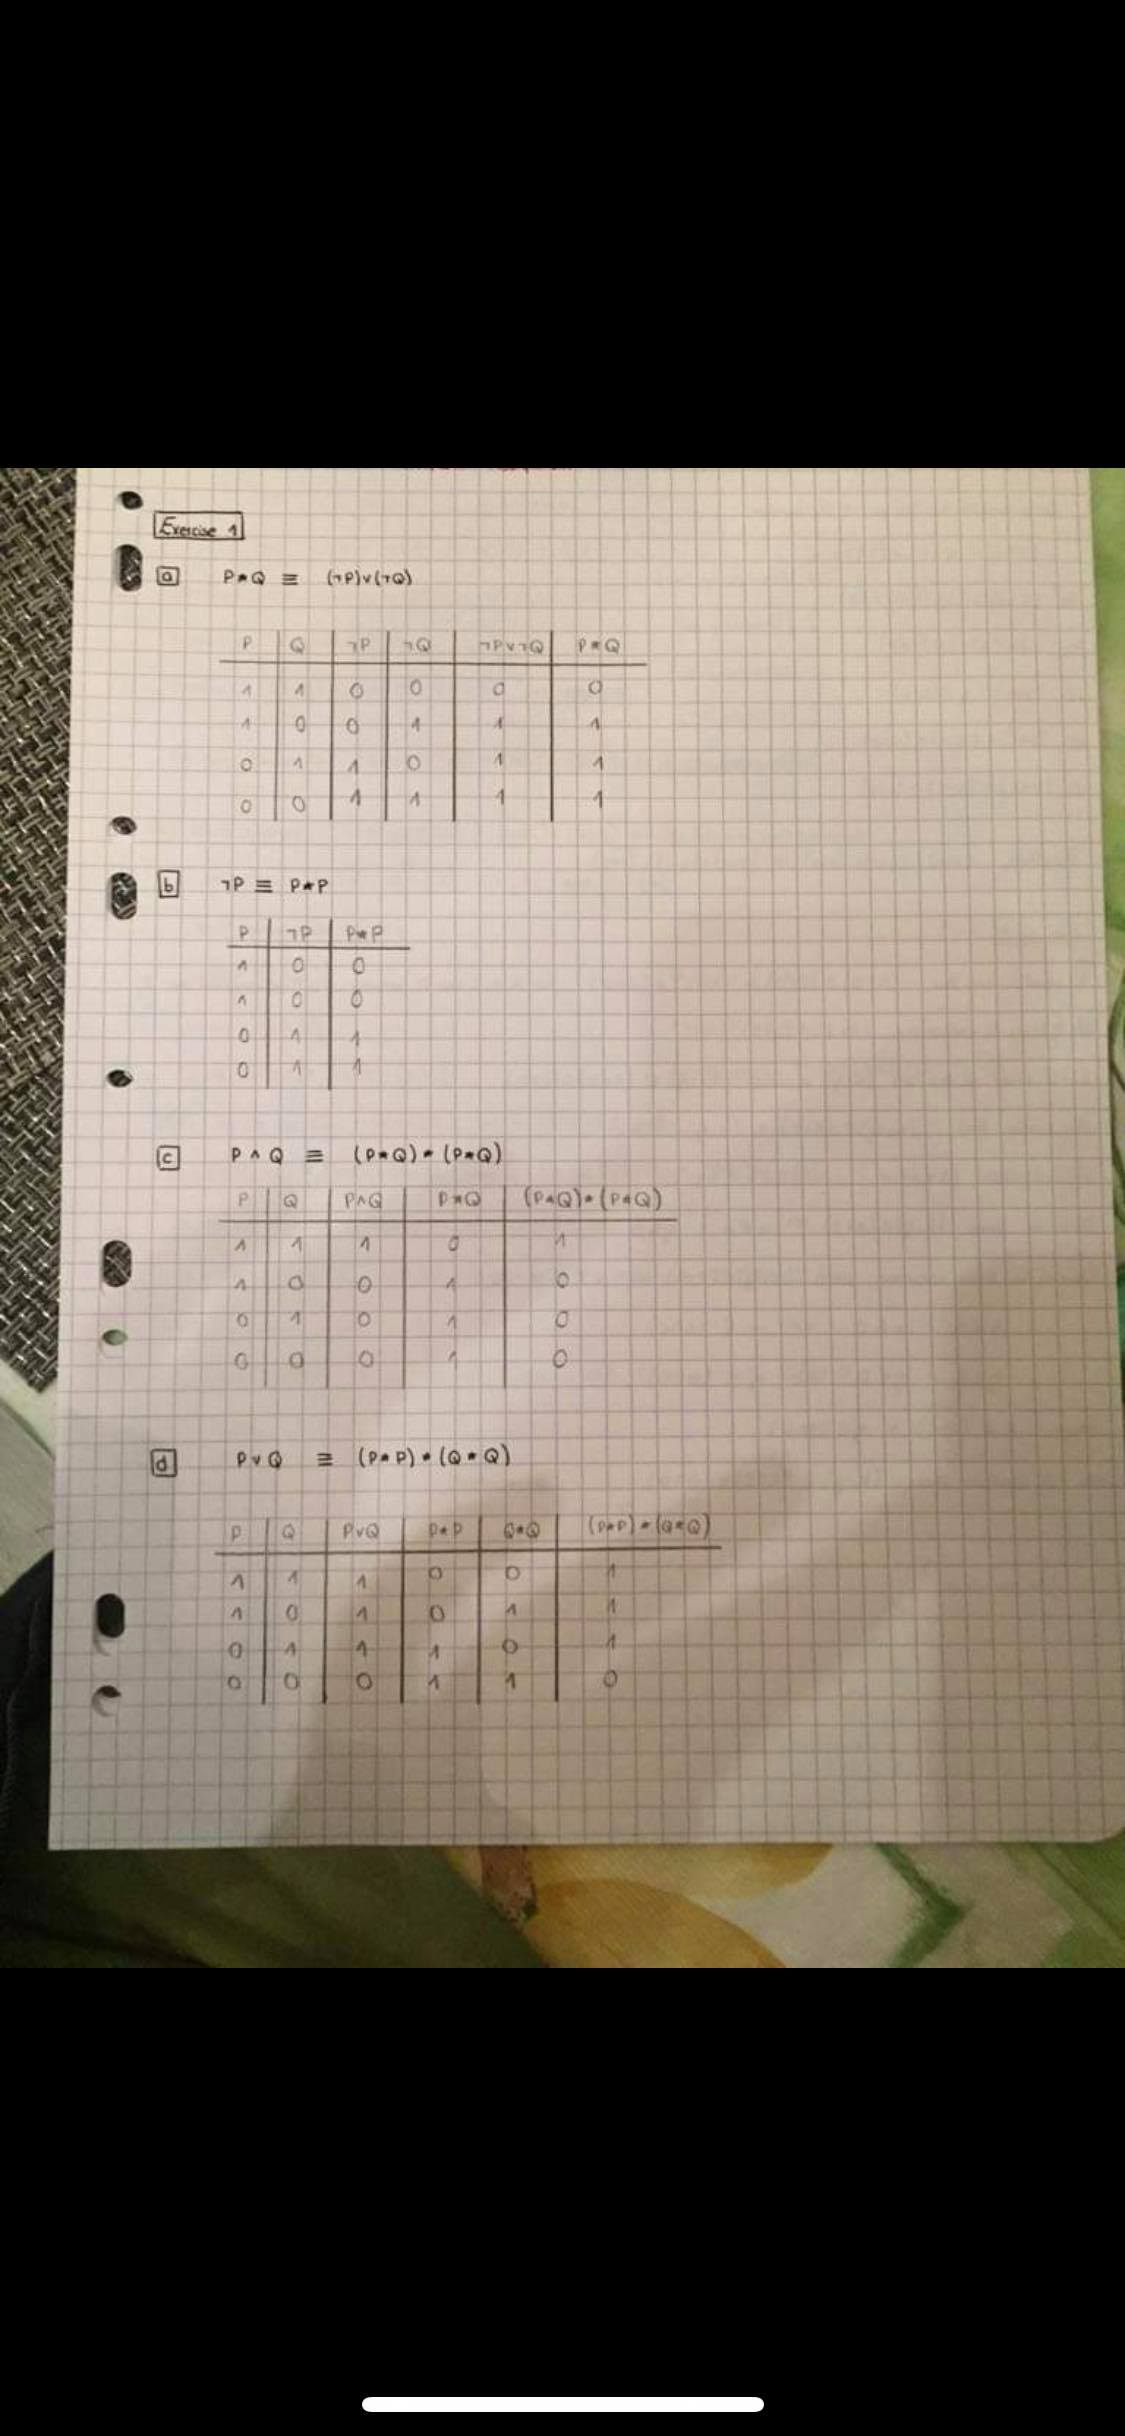 Exercise 1
a P*Q ≡ (¬P)∨(¬Q)
P Q ¬P ¬Q ¬P∨¬Q P*Q
1 1 0 0 0 0
1 0 0 1 1 1
0 1 1 0 1 1
0 0 1 1 1 1
b ¬P ≡ P*P
P ¬P P*P
1 0 0
1 0 0
0 1 1
0 1 1
c P∧Q ≡ (P*Q)*(P*Q)
P Q P∧Q P*Q (P*Q)*(P*Q)
1 1 1 0 1
1 0 0 1 0
0 1 0 1 0
0 0 0 1 0
d P∨Q ≡ (P*P)*(Q*Q)
P Q P∨Q P*P Q*Q (P*P)*(Q*Q)
1 1 1 0 0 1
1 0 1 0 1 1
0 1 1 1 0 1
0 0 0 1 1 0